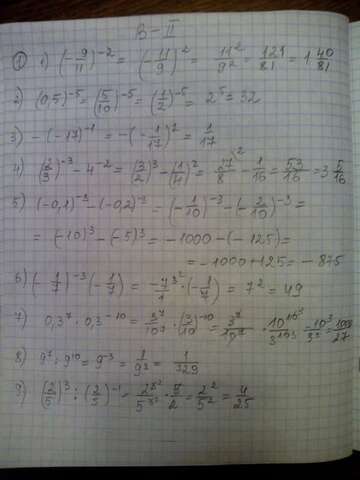 В-II
① 1) (-9/11)^-2 = (-11/9)^2 = 11^2/9^2 = 121/81 = 1 40/81
2) (0,5)^-5 = (5/10)^-5 = (1/2)^-5 = 2^5 = 32
3) -(-17)^-1 = -(-1/17)^2 = 1/17
4) (2/3)^-3 - 4^-2 = (3/2)^3 - (1/4)^2 = 27/8 - 1/16 = 53/16 = 3 5/16
5) (-0,1)^-3 - (-0,2)^-3 = (-1/10)^-3 - (-2/10)^-3 =
= (-10)^3 - (-5)^3 = -1000 - (-125) =
= -1000 + 125 = -875
6) (-1/7)^-3 (-1/7) = -7^3/1 · (-1/7) = 7^2 = 49
7) 0,3^7 · 0,3^-10 = 3^7/10^7 · (3/10)^-10 = 3^7/10^7 · 10^10/3^10 = 10^3/3^3 = 1000/27
8) 9^7 : 9^10 = 9^-3 = 1/9^3 = 1/729
9) (2/5)^3 : (2/5)^-1 = 2^3/5^3 · 5/2 = 2^2/5^2 = 4/25